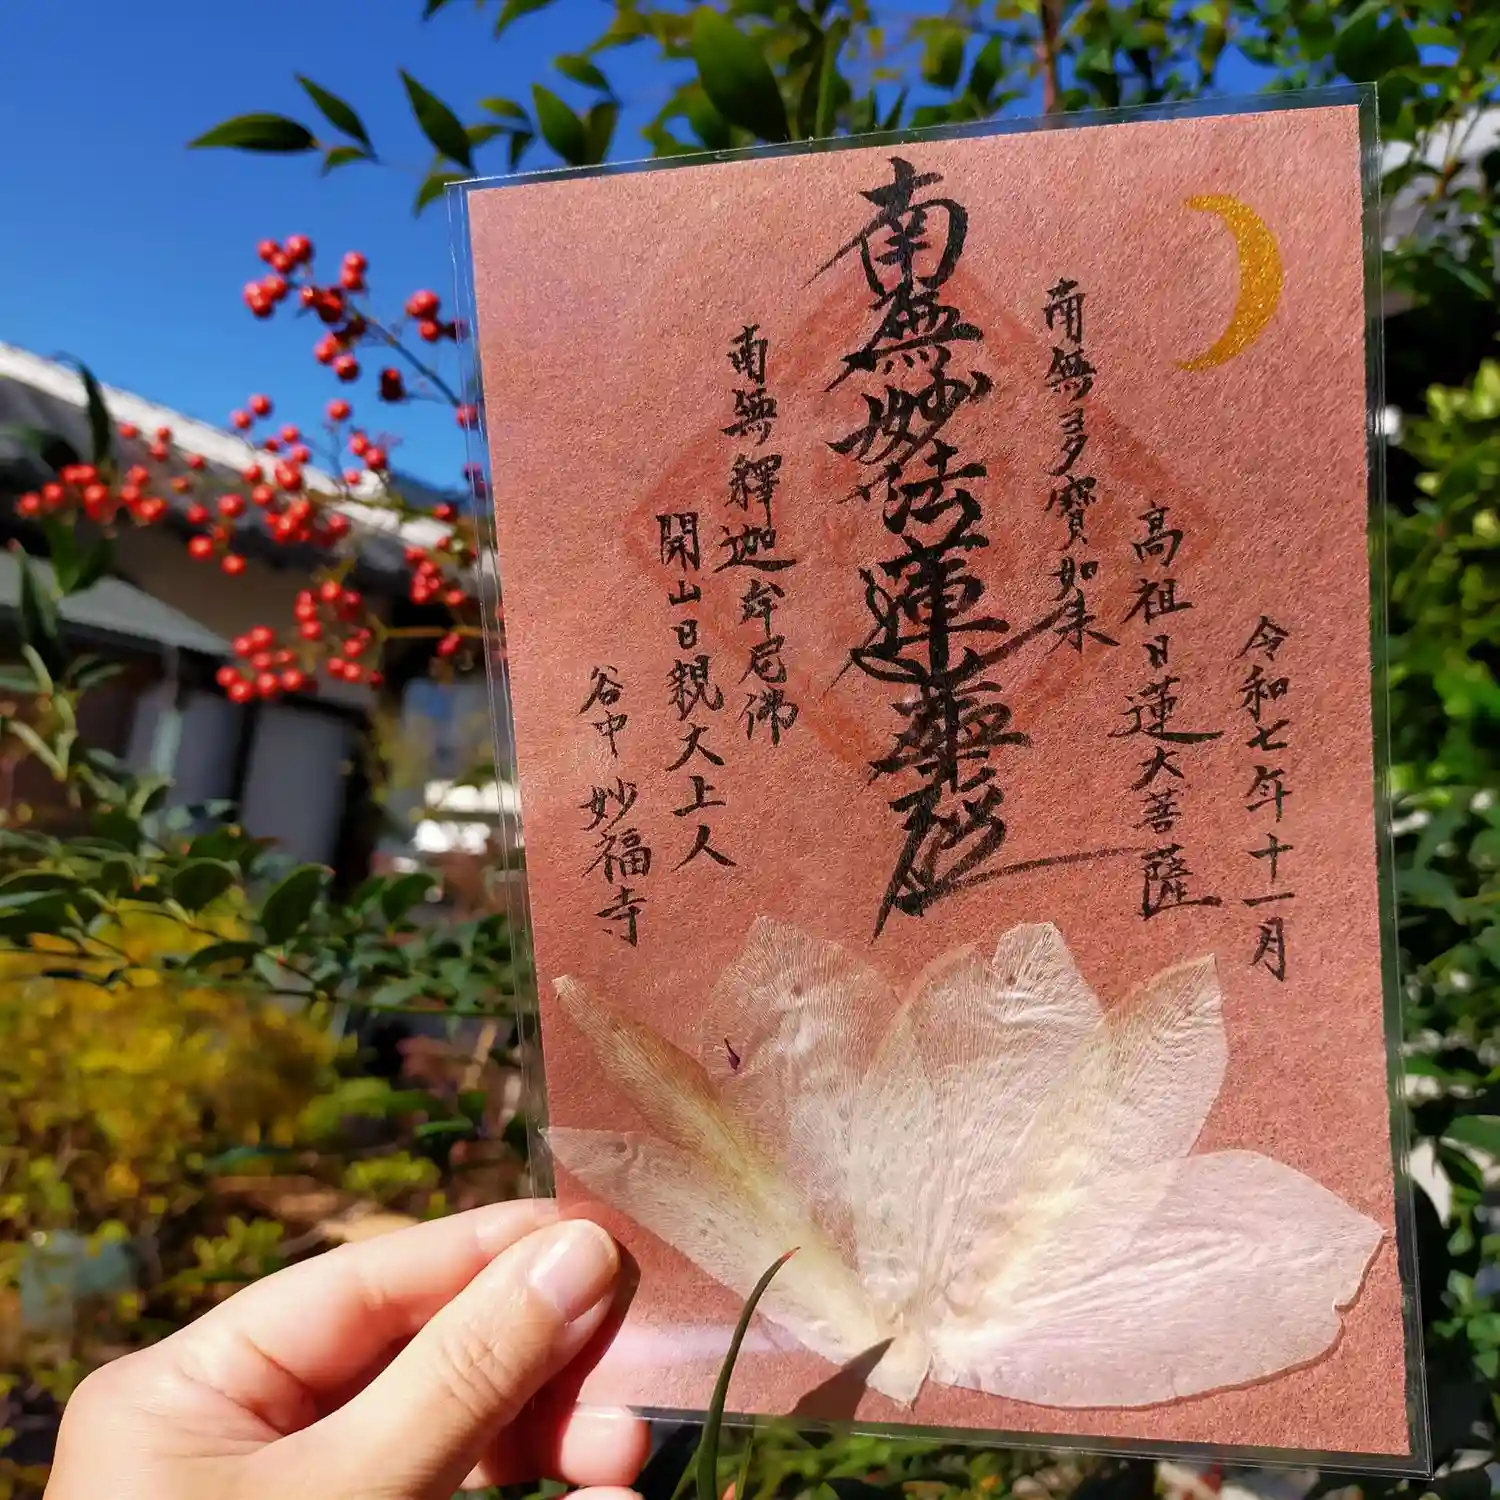 令和七年十一月
高祖日蓮大菩薩
南無多寶如来
南無妙法蓮華経
南無釋迦牟尼佛
開山日親大上人
谷中 妙福寺